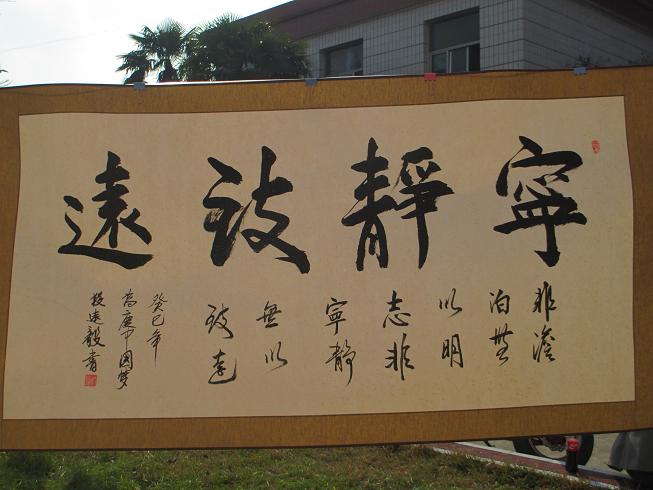 寧靜致遠
非澹
泊無
以明
志非
寧靜
無以
致遠
癸巳年
為慶中國夢
毅書